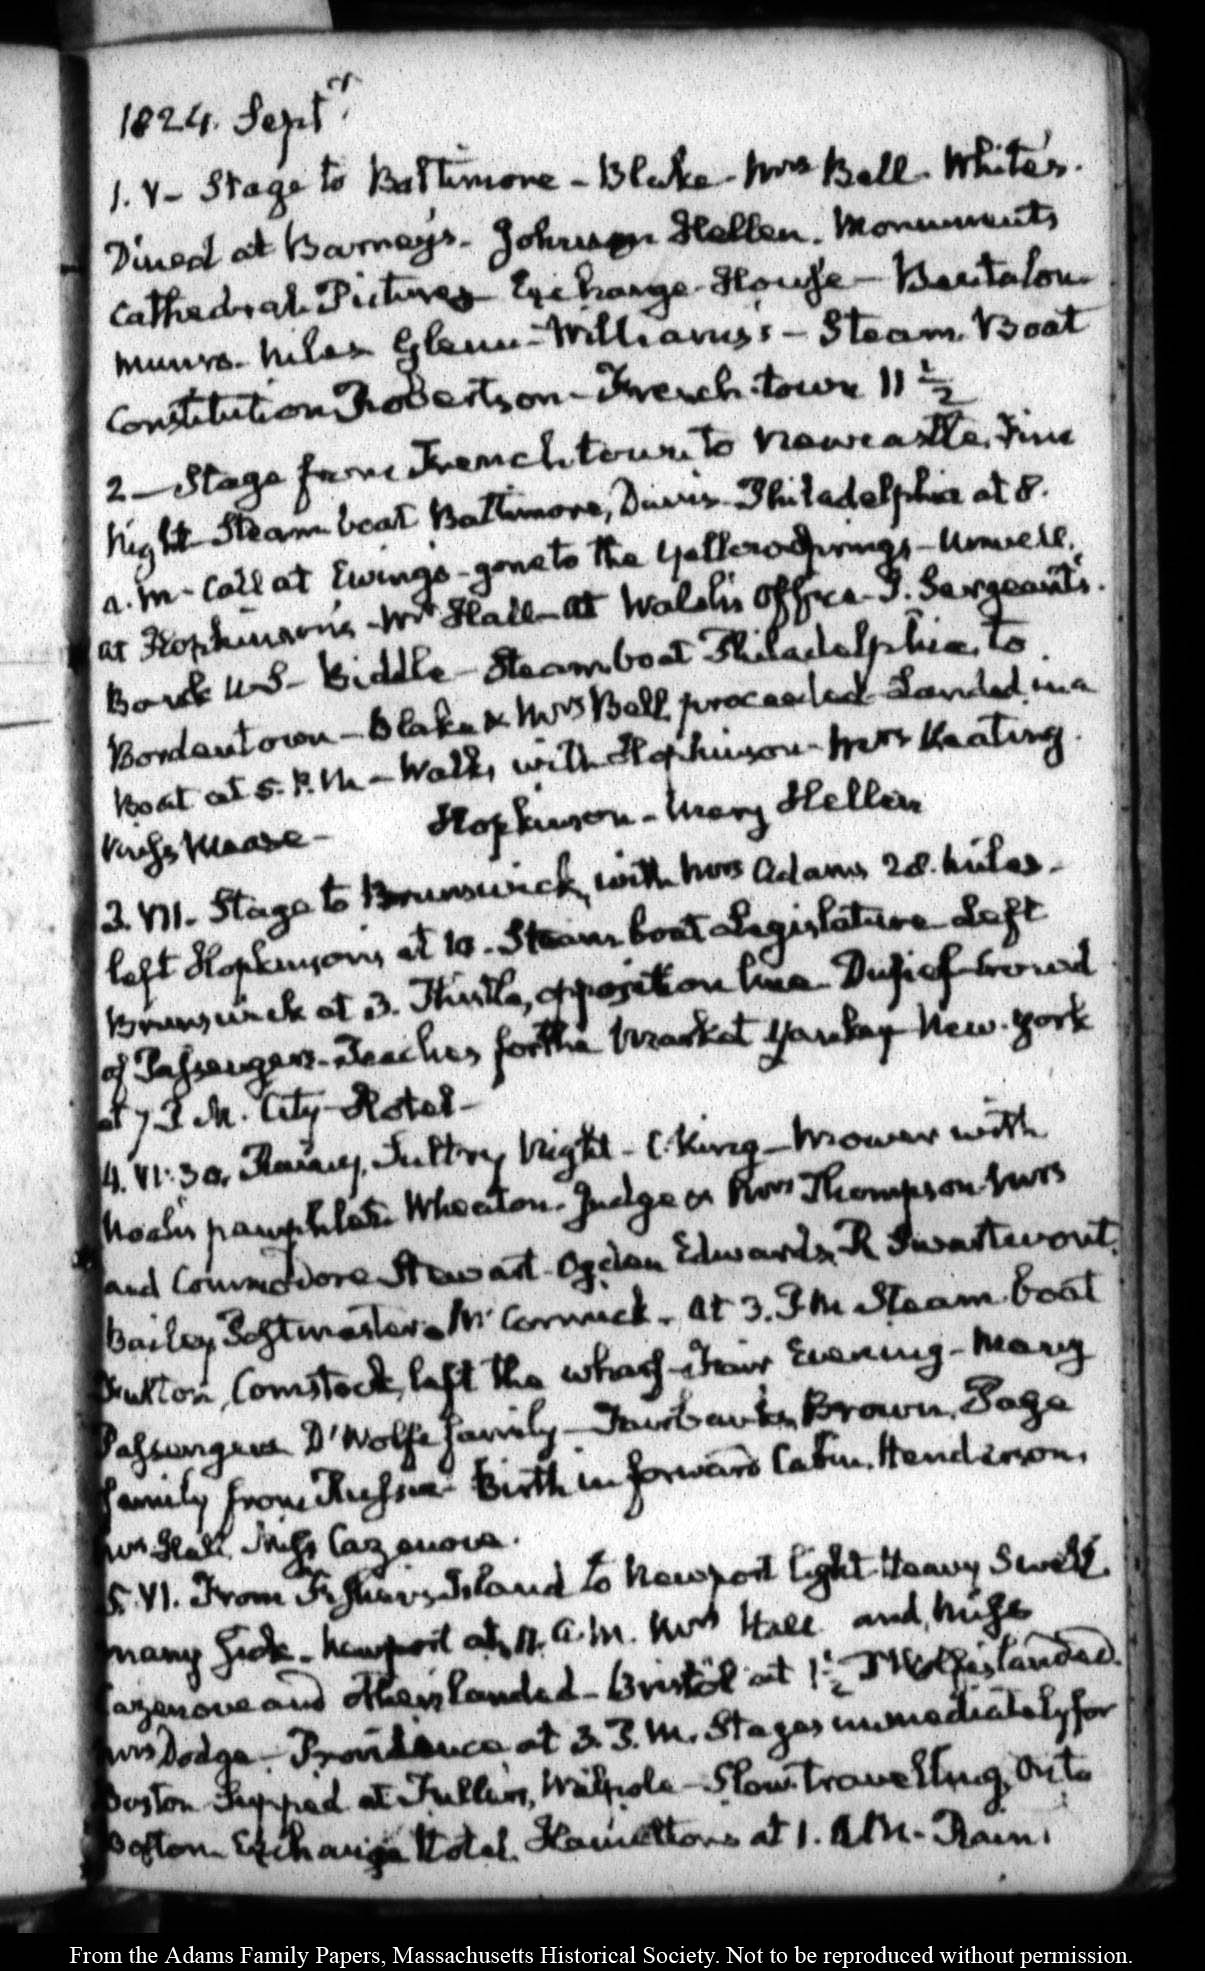 1824. Septr.
1. V— Stage to Baltimore – Blake – Mrs Ball – White's.
Dined at Barney's. Johnson Hellen. Monuments
Cathedral. Pictures – Exchange House – Bentalou
Munro. Niles Glenn – Williams's – Steam Boat
Constitution Robertson – French-town 11 1/2
2 — Stage from Frenchtown to Newcastle. Fine
Night Steam boat Baltimore, Davis. Philadelphia at 8.
A.M. Call at Ewing's – gone to the Yellow Springs – Unwell.
at Hopkinson's – Mrs Hall – at Walsh's Office – J. Sergeant's.
Bank U.S – Biddle – Steam boat Philadelphia, to
Bordentown – Blake & Mrs Ball proceeded – Landed in a
Boat at 5. P.M – Walk with Hopkinson – Mrs Keating.
Miss Mease – Hopkinson – Mary Hellen
3. VII. Stage to Brunswick, with Mrs Adams 28. Miles –
left Hopkinson's at 10. Steam boat Legislature – Left
Brunswick at 3. Thistle, opposition line – Dufief – Crowd
of Passengers – Peaches for the Market Yankey – New-York
at 7 P.M. City-Hotel –
4. VI:30. Rainy, Sultry Night – C. King – Mower with
Noah's pamphlet. Wheaton. Judge & Mrs Thompson. Mrs
and Commodore Stewart. Ogden Edwards, R Swartwout.
Bailey Postmaster. McCormick – At 3. P.M Steam-boat
Fulton, Comstock, left the wharf – Fair Evening – Many
Passengers D'Wolfe family – Fairbanks, Brown, Page
family from Russia – Birth in forward Cabin. Henderson,
Mrs Hall, Miss Cazenove.
5. VI. From Fishers Island to Newport light Heavy Swell.
many sick – Newport at 11. A.M. Mrs Hall and Miss
Cazenove and others landed – Bristol at 1 1/2 D'Wolfes landed.
Mrs Dodge – Providence at 3. P.M. Stages immediately for
Boston Supped at Fuller's, Walpole – Slow travelling, on to
Boston. Exchange Hotel. Hamilton's at 1. A.M – Rain.
From the Adams Family Papers, Massachusetts Historical Society. Not to be reproduced without permission.